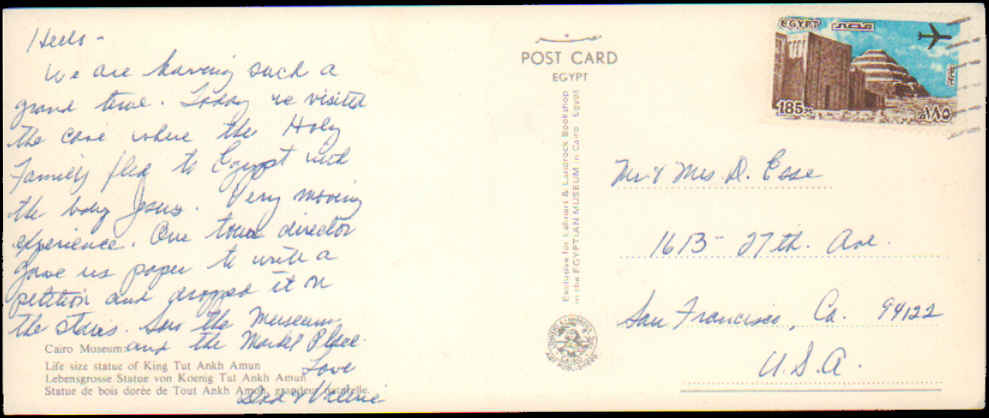 Hello -
We are having such a
grand time. Today we visited
the cave where the Holy
Family fled to Egypt with
the baby Jesus. Very moving
experience. Our tour director
gave us paper to write a
petition and dropped it on
the stairs. Saw the Museum
and the Market Place.
Love
Dad &
Cairo Museum:
Life size statue of King Tut Ankh Amun
Lebensgrosse Statue von Koenig Tut Ankh Amun
Statue de bois dorée de Tout Ankh Amon, grandeur naturelle.
POST CARD
EGYPT
Exclusive for Lehnert & Landrock Bookshop
in the EGYPTIAN MUSEUM in Cairo Egypt
EGYPT مصر
185 ١٨٥
Mr & Mrs D. Esse
1613- 27th. Ave.
San Francisco, Ca. 94122
U.S.A.